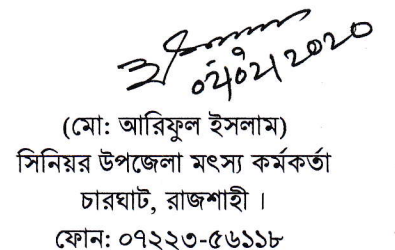 ০২/০২/২০২০
(মো: আরিফুল ইসলাম)
সিনিয়র উপজেলা মৎস্য কর্মকর্তা
চারঘাট, রাজশাহী ।
ফোন: ০৭২২৩-৫৬১১৮